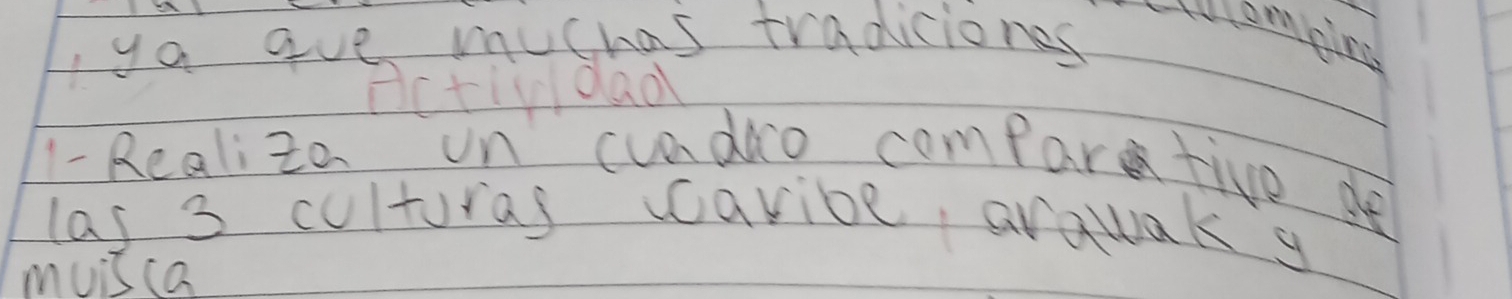 ya que muchas tradiciones
Actividad
1- Realiza un cuadro comparativo de
las 3 culturas caribe, arawak y
muisca